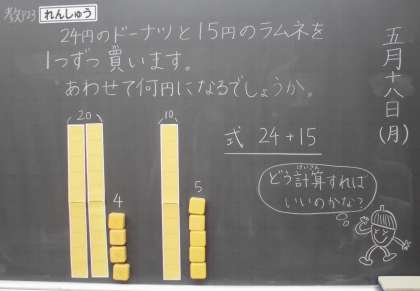 教P23 れんしゅう
24円のドーナツと15円のラムネを
1つずつ買います。
あわせて何円になるでしょうか。
五月十八日(月)
20
10
4
5
式 24+15
どう計算すれば
いいのかな?